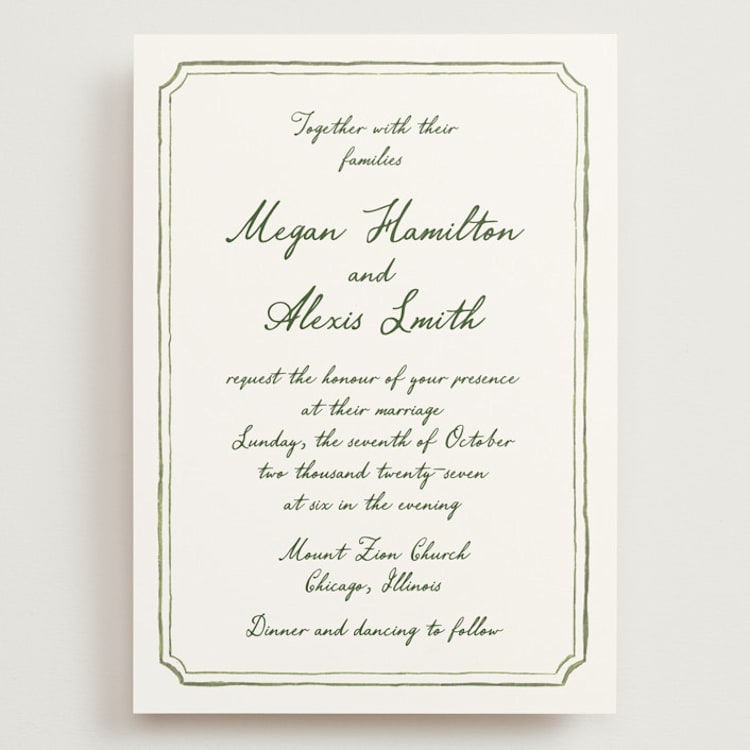 Together with their
families
Megan Hamilton
and
Alexis Smith
request the honour of your presence
at their marriage
Sunday, the seventh of October
two thousand twenty-seven
at six in the evening
Mount Zion Church
Chicago, Illinois
Dinner and dancing to follow